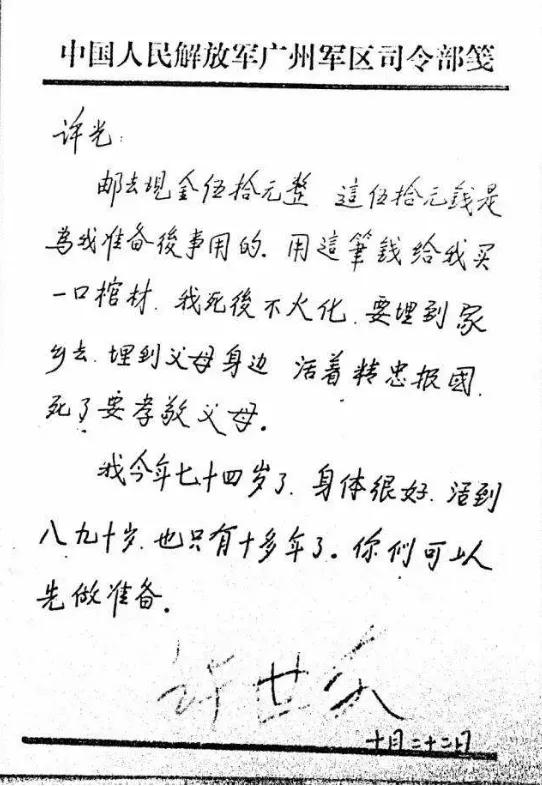 中国人民解放军广州军区司令部笺
许光：
邮去现金伍拾元整 這伍拾元錢是
為我准备後事用的．用這筆錢给我买
一口棺材．我死後不火化．要埋到家
乡去．埋到父母身边 活着精忠报國．
死了要孝敬父母。
我今年七十四岁了．身体很好．活到
八九十岁．也只有十多年了。你们可以
先做准备．
许世友
十月二十二日